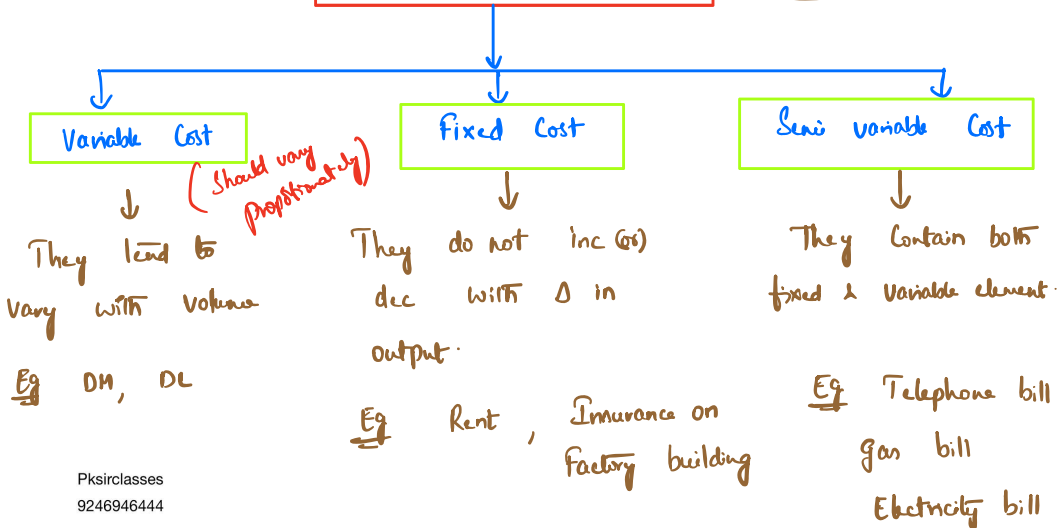 Variable Cost
(Should vary
proportionately)
They tend to
vary with volume
Eg DM, DL
Fixed Cost
They do not inc (or)
dec with Δ in
output.
Eg Rent, Insurance on
Factory building
Semi variable Cost
They Contain both
fixed & variable element.
Eg Telephone bill
gas bill
Electricity bill
Pksirclasses
9246946444